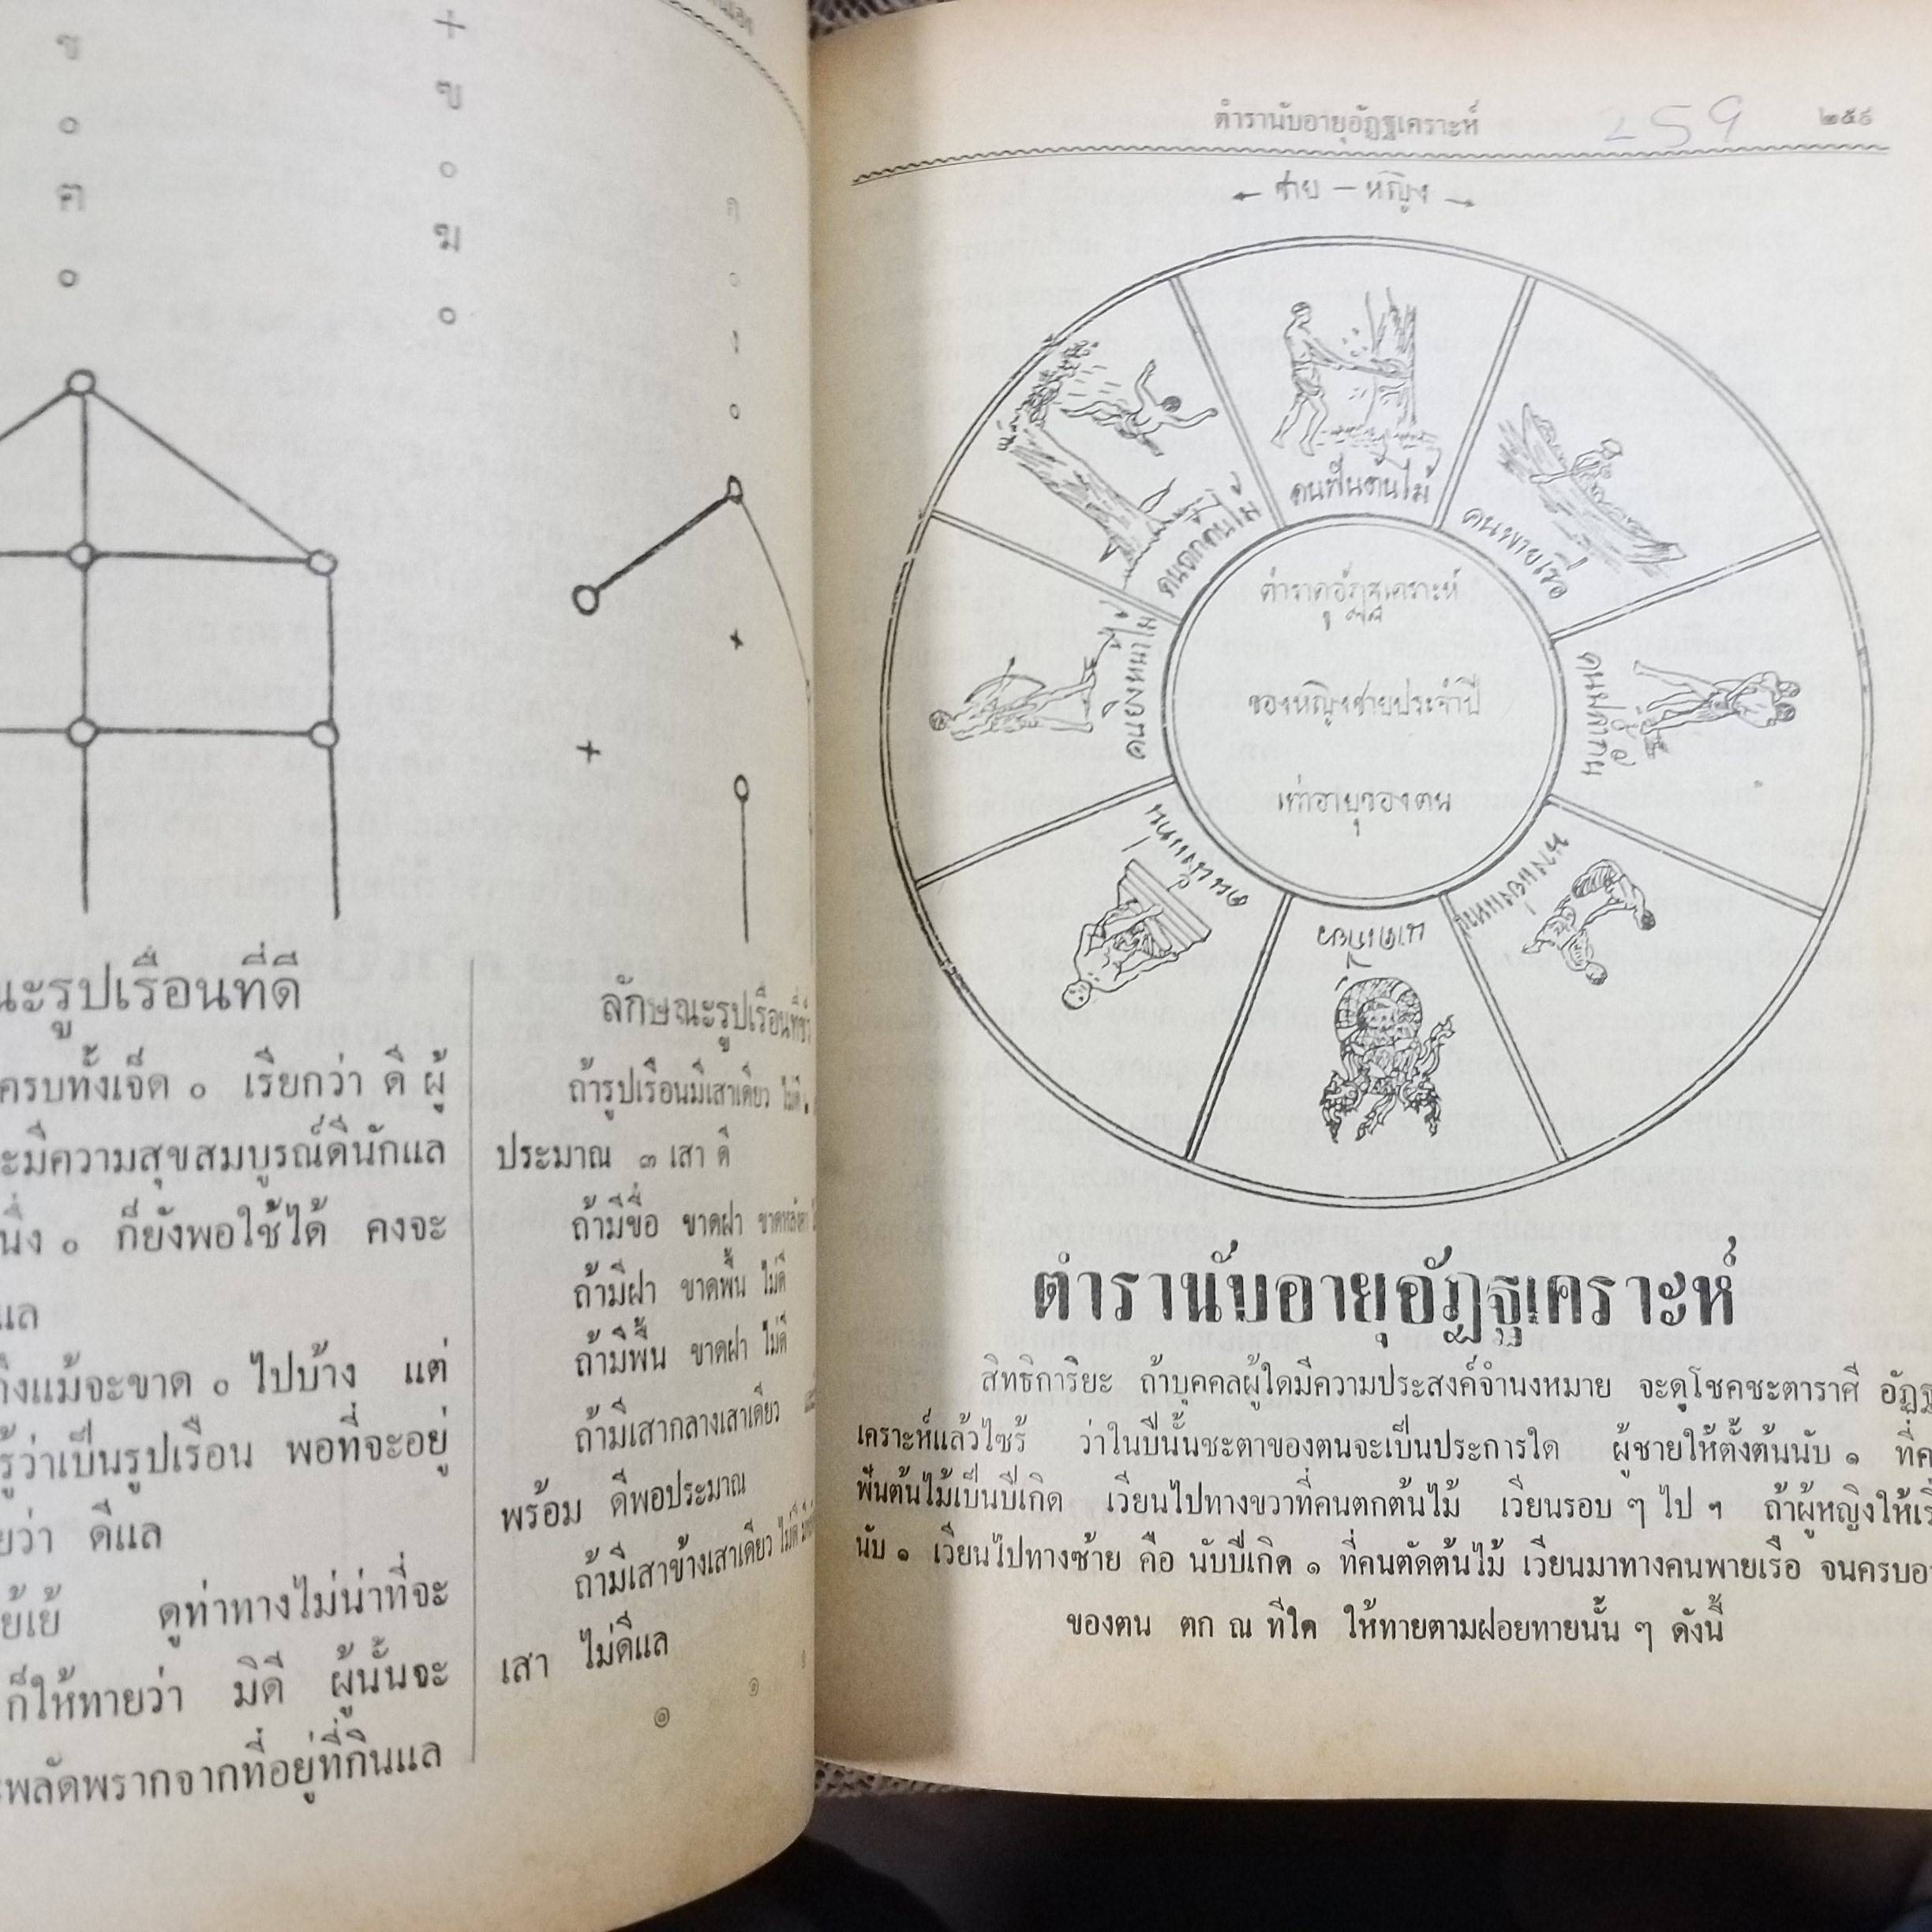 ข
๐
ฅ
๐
+
ฃ
๐
ฆ
๐
ค
๐
ง
๐
+
+
ณะรูปเรือนที่ดี
ครบทั้งเจ็ด ๐ เรียกว่า ดี ผู้
ะมีความสุขสมบูรณ์ดีนักแล
นึ่ง ๐ ก็ยังพอใช้ได้ คงจะ
แล
ถึงแม้จะขาด ๐ ไปบ้าง แต่
รู้ว่าเป็นรูปเรือน พอที่จะอยู่
ยว่า ดีแล
ย้เย้ ดูท่าทางไม่น่าที่จะ
ก็ให้ทายว่า มิดี ผู้นั้นจะ
พลัดพรากจากที่อยู่ที่กินแล
ลักษณะรูปเรือนที่
ถ้ารูปเรือนมีเสาเดียว ไม่ดี
ประมาณ ๓ เสา ดี
ถ้ามีขื่อ ขาดฝา ขาดหลังคา
ถ้ามีฝา ขาดพื้น ไม่ดี
ถ้ามีพื้น ขาดฝา ไม่ดี
ถ้ามีเสากลางเสาเดียว
พร้อม ดีพอประมาณ
ถ้ามีเสาข้างเสาเดียว ไม่ดี
เสา ไม่ดีแล
๑ ๑
ตำรานับอายุอัฏฐเคราะห์ 259 ๒๕๙
← ชาย – หญิง →
คนฟันต้นไม้
คนพายเรือ
คนตกต้นไม้
คนยิงหน้าไม้
ตำราดูอัฏฐเคราะห์
ของหญิงชายประจำปี
เท่าอายุของตน
ตำรานับอายุอัฏฐเคราะห์
สิทธิการิยะ ถ้าบุคคลผู้ใดมีความประสงค์จำนงหมาย จะดูโชคชะตาราศี อัฏฐ
เคราะห์แล้วไซร้ ว่าในปีนั้นชะตาของตนจะเป็นประการใด ผู้ชายให้ตั้งต้นนับ ๑ ที่ค
ฟันต้นไม้เป็นปีเกิด เวียนไปทางขวาที่คนตกต้นไม้ เวียนรอบ ๆ ไป ฯ ถ้าผู้หญิงให้เริ่
นับ ๑ เวียนไปทางซ้าย คือ นับปีเกิด ๑ ที่คนตัดต้นไม้ เวียนมาทางคนพายเรือ จนครบอา
ของตน ตก ณ ที่ใด ให้ทายตามฝอยทายนั้น ๆ ดังนี้